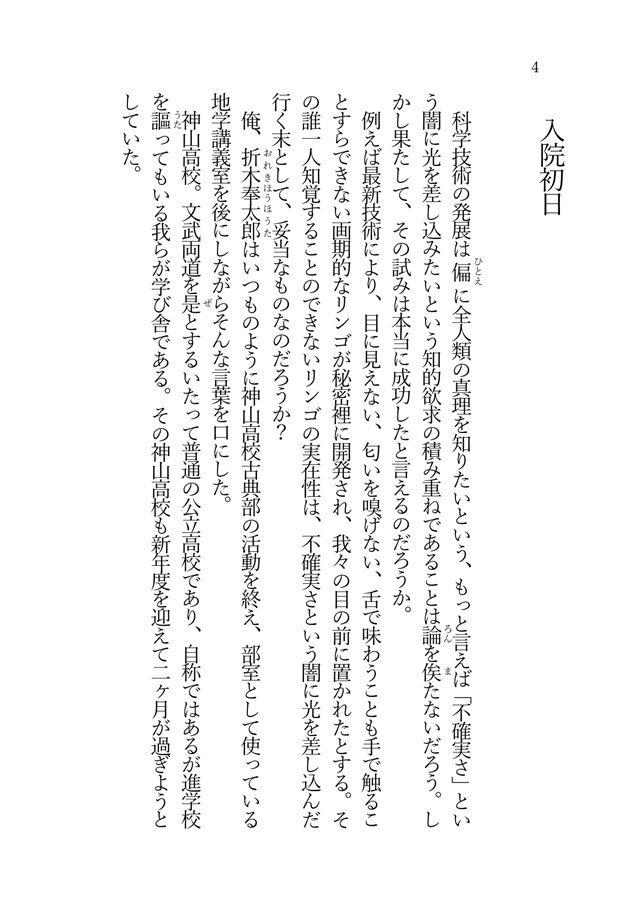 4
入院初日
科学技術の発展は偏に全人類の真理を知りたいという、もっと言えば「不確実さ」とい
う闇に光を差し込みたいという知的欲求の積み重ねであることは論を俟たないだろう。し
かし果たして、その試みは本当に成功したと言えるのだろうか。
例えば最新技術により、目に見えない、匂いを嗅げない、舌で味わうことも手で触るこ
とすらできない画期的なリンゴが秘密裡に開発され、我々の目の前に置かれたとする。そ
の誰一人知覚することのできないリンゴの実在性は、不確実さという闇に光を差し込んだ
行く末として、妥当なものなのだろうか？
俺、折木奉太郎はいつものように神山高校古典部の活動を終え、部室として使っている
地学講義室を後にしながらそんな言葉を口にした。
神山高校。文武両道を是とするいたって普通の公立高校であり、自称ではあるが進学校
を謳ってもいる我らが学び舎である。その神山高校も新年度を迎えて二ヶ月が過ぎようと
していた。